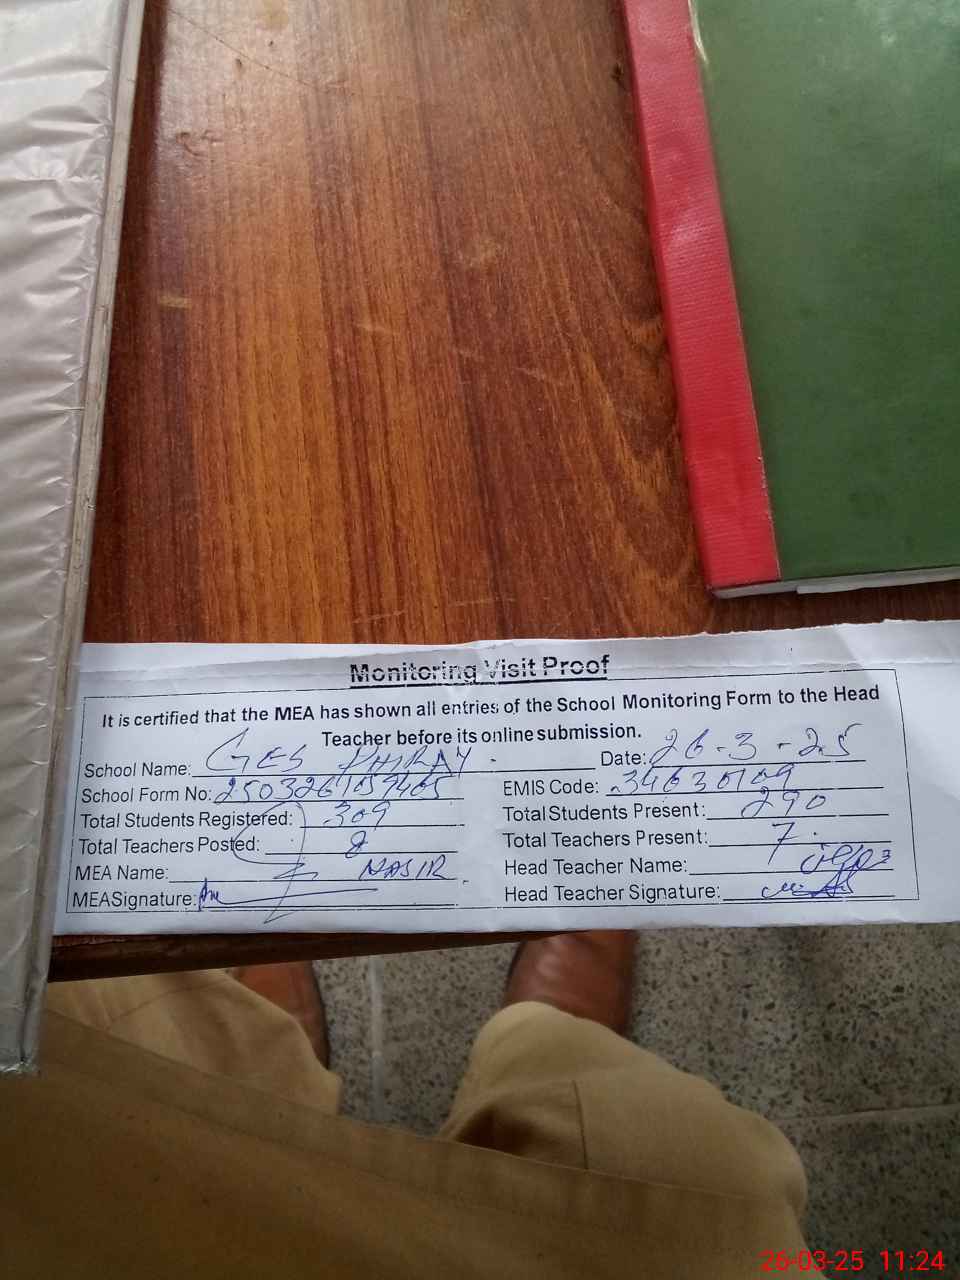 Monitoring Visit Proof
It is certified that the MEA has shown all entries of the School Monitoring Form to the Head
Teacher before its online submission.
School Name: GES PHIRAY. Date: 26-3-25
School Form No: EMIS Code: 34630109
Total Students Registered: 309 Total Students Present: 290
Total Teachers Posted: 8 Total Teachers Present: 7.
MEA Name: NASIR Head Teacher Name:
MEA Signature: Head Teacher Signature:
26-03-25 11:24